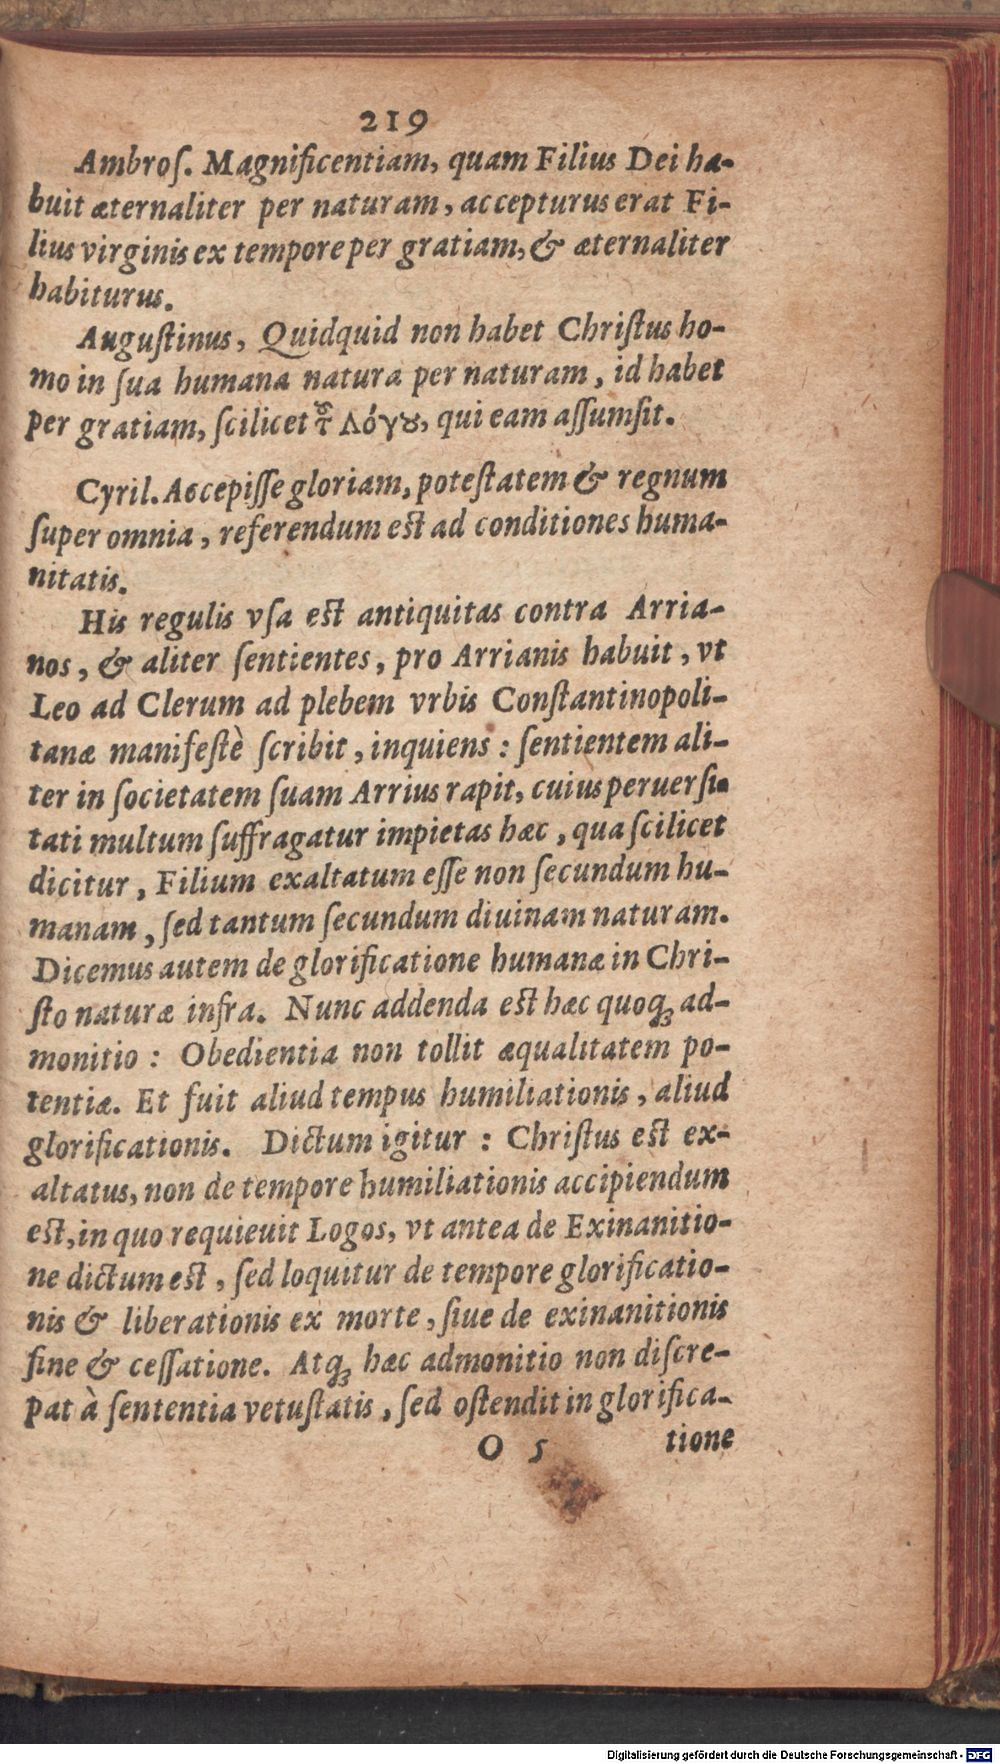 219
Ambroſ. Magnificentiam, quam Filius Dei ha-
buit æternaliter per naturam, accepturus erat Fi-
lius virginis ex tempore per gratiam, & æternaliter
habiturus.
Auguſtinus, Quidquid non habet Chriſtus ho-
mo in ſua humana natura per naturam, id habet
per gratiam, ſcilicet τȣ͂ Λόγȣ, qui eam aſſumſit.
Cyril. Accepiſſe gloriam, poteſtatem & regnum
ſuper omnia, referendum eſt ad conditiones huma-
nitatis.
His regulis vſa eſt antiquitas contra Arria-
nos, & aliter ſentientes, pro Arrianis habuit, vt
Leo ad Clerum ad plebem vrbis Conſtantinopoli-
tanæ manifeſtè ſcribit, inquiens: ſentientem ali-
ter in ſocietatem ſuam Arrius rapit, cuius peruerſi-
tati multum ſuffragatur impietas hæc, qua ſcilicet
dicitur, Filium exaltatum eſſe non ſecundum hu-
manam, ſed tantum ſecundum diuinam naturam.
Dicemus autem de glorificatione humanæ in Chri-
ſto naturæ infra. Nunc addenda eſt hæc quoqꝫ ad-
monitio: Obedientia non tollit æqualitatem po-
tentiæ. Et fuit aliud tempus humiliationis, aliud
glorificationis. Dictum igitur: Chriſtus eſt ex-
altatus, non de tempore humiliationis accipiendum
eſt, in quo requieuit Logos, vt antea de Exinanitio-
ne dictum eſt, ſed loquitur de tempore glorificatio-
nis & liberationis ex morte, ſiue de exinanitionis
fine & ceſſatione. Atqꝫ hæc admonitio non diſcre-
pat à ſententia vetuſtatis, ſed oſtendit in glorifica-
O 5 tione
Digitalisierung gefördert durch die Deutsche Forschungsgemeinschaft - DFG